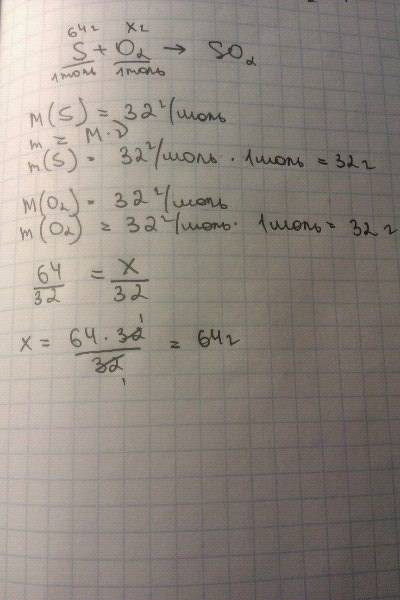 64г x г
S + O₂ → SO₂
1моль 1моль
M(S) = 32 г/моль
m = M·ν
m(S) = 32 г/моль · 1моль = 32 г
M(O₂) = 32 г/моль
m(O₂) = 32 г/моль · 1моль = 32 г
64/32 = x/32
x = 64·32/32 = 64г